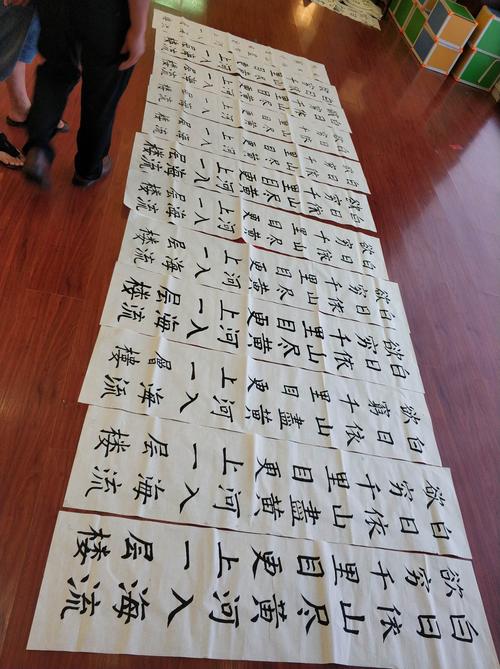 白日依山尽黄河入海流
欲穷千里目更上一层楼
白日依山尽黄河入海流
欲穷千里目更上一层楼
白日依山尽黄河入海流
欲穷千里目更上一层楼
白日依山尽黄河入海流
欲穷千里目更上一层楼
白日依山尽黄河入海流
欲穷千里目更上一层楼
白日依山盡黄河入海流
欲窮千里目更上一層樓
白日依山盡黄河入海流
欲穷千里目更上一层楼
白日依山尽黄河入海流
欲穷千里目更上一层楼